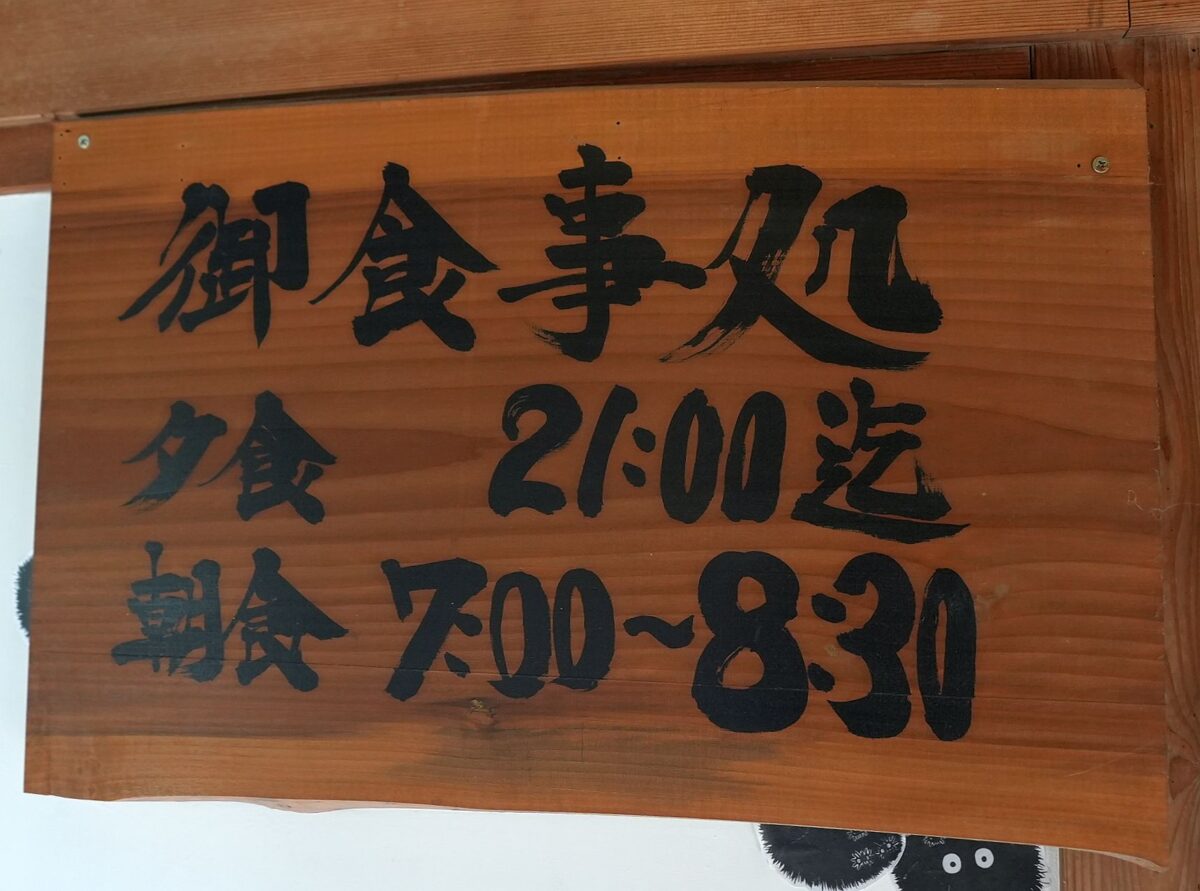 御食事処
夕食 21:00迄
朝食 7:00~8:30